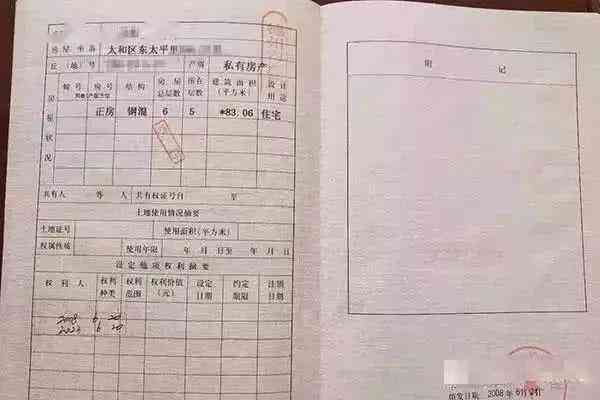 房屋坐落 太和区东太平里
丘(地)号 产别 私有房产
房屋状况
幢号 房号 结构 房屋总层数 所在层数 建筑面积(平方米) 设计用途
正房 钢混 6 5 *83.06 住宅
共有人 等 人 共有权证号自 至
土地使用情况摘要
土地证号 使用面积(平方米)
权属性质 使用年限 年 月 日至 年 月 日
设定他项权利摘要
权利人 权利种类 权利范围 权利价值(元) 设定日期 约定期限 注销日期
2008 6 20
6 20
附 记
填发日期 2008年6月